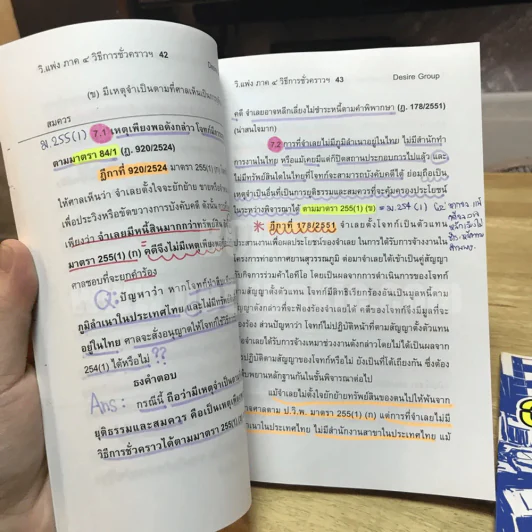 วิ.แพ่ง ภาค ๔ วิธีการชั่วคราวฯ 42
(ข) มีเหตุจำเป็นตามที่ศาลเห็นเป็นการ
สมควร
ม.255(1)
7.1 เหตุเพียงพอดังกล่าว โจทก์มี
ตามมาตรา 84/1 (ฎ. 920/2524)
ฎีกาที่ 920/2524 มาตรา 255 (1) (ก)
ให้ศาลเห็นว่า จำเลยตั้งใจจะยักย้าย
เพื่อประวิงหรือขัดขวางการบังคับคดี ดังนั้น
เพียงว่า จำเลยมีหนี้สินมากกว่าทรัพย์สิน
มาตรา 255(1) (ก) คดีจึงไม่มีเหตุเพียงพอ
ศาลชอบที่จะยกคำร้อง
Q: ปัญหาว่า หากโจทก์
ภูมิลำเนาในประเทศไทย และไม่มีทรัพย์
อยู่ในไทย ศาลจะสั่งอนุญาตให้โจทก์ใช้
254(1) ได้หรือไม่ ??
ธงคำตอบ
Ans: กรณีนี้ ถือว่ามีเหตุจำเป็น
ยุติธรรมและสมควร คือเป็นเหตุ
วิธีการชั่วคราวได้ตามมาตรา 255(1)
วิ.แพ่ง ภาค ๔ วิธีการชั่วคราวฯ 43 Desire Group
คดี จำเลยอาจหลีกเลี่ยงไม่ชำระหนี้ตามคำพิพากษา (ฎ. 178/2551)
(น่าสนใจมาก)
7.2 การที่จำเลยไม่มีภูมิลำเนาอยู่ในไทย ไม่มีสำนักทำ
การงานในไทย หรือแม้เคยมีแต่ก็ปิดสถานประกอบการไปแล้ว และ
ไม่มีทรัพย์สินใดในไทยที่โจทก์จะสามารถบังคับคดีได้ ย่อมถือเป็น
เหตุจำเป็นอื่นที่เป็นการยุติธรรมและสมควรที่จะคุ้มครองประโยชน์
ในระหว่างพิจารณาได้ ตามมาตรา 255(1) (ข) = ม.254 (1)
* ฎีกาที่ 178/2551 จำเลยตั้งโจทก์เป็นตัวแทน
ประสานงานเพื่อผลประโยชน์ของจำเลย ในการได้รับการจ้างงานใน
โครงการท่าอากาศยานสุวรรณภูมิ ต่อมาจำเลยได้เข้าเป็นคู่สัญญา
กับกิจการร่วมค้าไอทีโอ โดยเป็นผลจากการดำเนินการของโจทก์
ตามสัญญาตั้งตัวแทน โจทก์มีสิทธิเรียกร้องอันเป็นมูลหนี้ตาม
สัญญาตั้งตัวแทนดังกล่าวที่จะฟ้องร้องจำเลยได้ คดีของโจทก์จึงมีมูลที่จะ
ฟ้องร้อง ส่วนปัญหาว่า โจทก์ไม่ปฏิบัติหน้าที่ตามสัญญาตั้งตัวแทน
จำเลยได้รับการว่าจ้างเหมาช่วงงานดังกล่าวโดยไม่ได้เป็นผลจากการ
ปฏิบัติตามสัญญาของโจทก์หรือไม่ ยังเป็นที่โต้เถียงกัน ซึ่งต้อง
พยานหลักฐานกันในชั้นพิจารณาต่อไป
แม้จำเลยไม่ตั้งใจยักย้ายทรัพย์สินของตนไปให้พ้นจาก
อำนาจศาลตาม ป.วิ.พ. มาตรา 255(1) (ก) แต่การที่จำเลยไม่มี
ภูมิลำเนาในประเทศไทย ไม่มีสำนักงานสาขาในประเทศไทย แม้